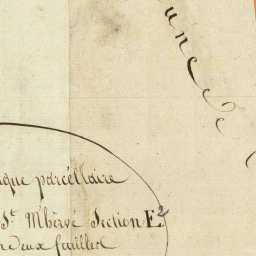 une de
ique parcéllaire
St. M'hervé Section E2
en deux feuilles